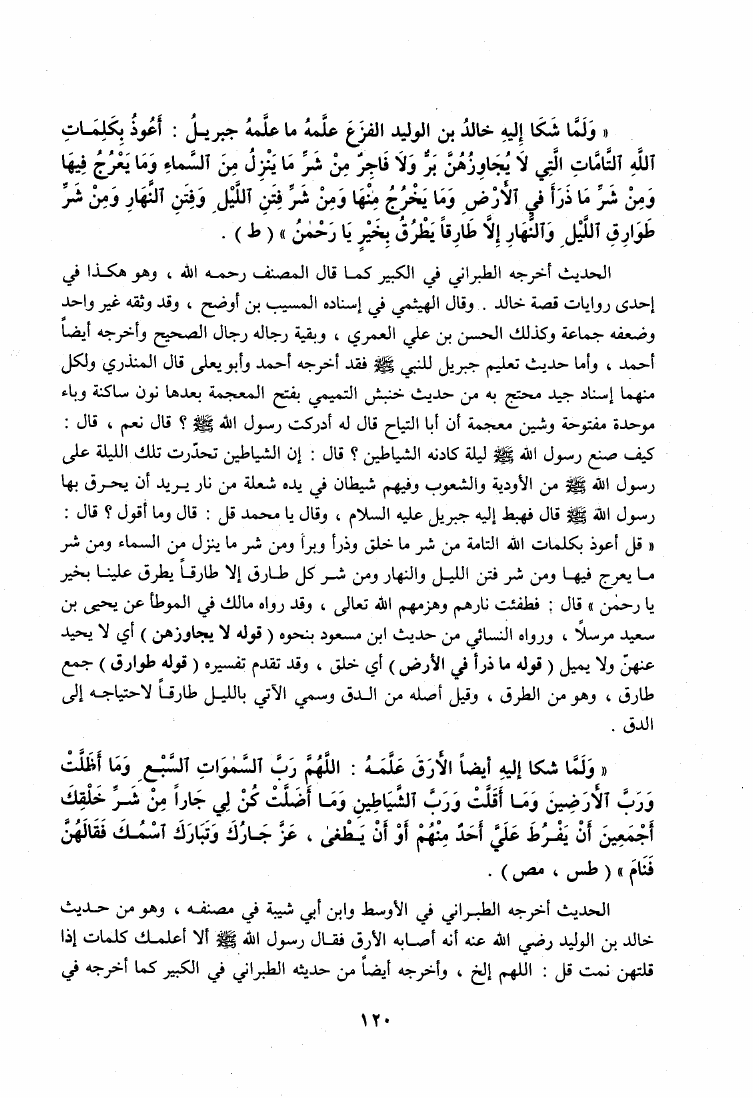 « وَلَمَّا شَكَا إِلَيهِ خالدُ بن الوليد الفزَعَ علَّمهُ ما علَّمهُ جبريـلُ : أَعُوذُ بِكَلِمَـاتِ
ٱللَّهِ ٱلتَّامَّاتِ الَّتِي لَا يُجَاوِزُهُنَّ بَرٌّ وَلَا فَاجِرٌ مِنْ شَرِّ مَا يَنْزِلُ مِنَ ٱلسَّماءِ وَمَا يَعْرُجُ فِيهَا
وَمِنْ شَرِّ مَا ذَرَأَ فِي ٱلْأَرْضِ وَمَا يَخْرُجُ مِنْهَا وَمِنْ شَرِّ فِتَنِ ٱللَّيْلِ وَفِتَنِ ٱلنَّهَارِ وَمِنْ شَرِّ
طَوَارِقِ ٱللَّيْلِ وَٱلنَّهَارِ إِلَّا طَارِقاً يَطْرُقُ بِخَيْرٍ يَا رَحْمٰنُ » ( ط ) .
الحديث أخرجه الطبراني في الكبير كمـا قال المصنف رحمـه الله ، وهو هكـذا في
إحدى روايات قصة خالد . وقال الهيثمي في إسناده المسيب بن أوضح ، وقد وثقه غير واحد
وضعفه جماعة وكذلك الحسن بن علي العمري ، وبقية رجاله رجال الصحيح وأخرجه أيضاً
أحمد ، وأما حديث تعليم جبريل للنبي ﷺ فقد أخرجه أحمد وأبو يعلى قال المنذري ولكل
منهما إسناد جيد محتج به من حديث خنبش التميمي بفتح المعجمة بعدها نون ساكنة وباء
موحدة مفتوحة وشين معجمة أن أبا التياح قال له أدركت رسول الله ﷺ ؟ قال نعم ، قال :
كيف صنع رسول الله ﷺ ليلة كادنه الشياطين ؟ قال : إن الشياطين تحدّرت تلك الليلة على
رسول الله ﷺ من الأودية والشعوب وفيهم شيطان في يده شعلة من نار يـريد أن يحـرق بها
رسول الله ﷺ قال فهبط إليه جبريل عليه السلام ، وقال يا محمد قل : قال وما أقول ؟ قال :
« قل أعوذ بكلمات الله التامة من شر ما خلق وذرأ وبرأ ومن شر ما ينزل من السماء ومن شر
مـا يعرج فيهـا ومن شر فتن الليـل والنهار ومن شـر كل طـارق إلا طارقـاً يطرق علينـا بخير
يا رحمٰن » قال : فطفئت نارهم وهزمهم الله تعالى ، وقد رواه مالك في الموطأ عن يحيى بن
سعيد مرسلًا ، ورواه النسائي من حديث ابن مسعود بنحوه ( قوله لا يجاوزهن ) أي لا يحيد
عنهنّ ولا يميل ( قوله ما ذرأ في الأرض ) أي خلق ، وقد تقدم تفسيره ( قوله طوارق ) جمع
طارق ، وهو من الطرق ، وقيل أصله من الـدق وسمي الآتي بالليـل طارقـاً لاحتياجـه إلى
الدق .
« وَلَمَّا شكا إليه أيضاً الأرَقَ عَلَّمَـهُ : اللَّهُمَّ رَبَّ ٱلسَّمٰوَاتِ ٱلسَّبْعِ وَمَا أَظَلَّتْ
وَرَبَّ ٱلأَرَضِينَ وَمَـا أَقَلَّتْ وَرَبَّ ٱلشَّيَاطِينِ وَمَـا أَضَلَّتْ كُنْ لِي جَاراً مِنْ شَـرِّ خَلْقِكَ
أَجْمَعِينَ أَنْ يَفْـرُطَ عَلَيَّ أَحَدٌ مِنْهُمْ أَوْ أَنْ يَـطْغىٰ ، عَزَّ جَـارُكَ وَتَبَارَكَ ٱسْمُـكَ فَقَالَهُنَّ
فَنَامَ » ( طس ، مص ) .
الحديث أخرجه الطبـراني في الأوسط وابن أبي شيبة في مصنفـه ، وهو من حـديث
خالد بن الوليد رضي الله عنه أنه أصـابه الأرق فقـال رسول الله ﷺ ألا أعلمـك كلمات إذا
قلتهن نمت قل : اللهم إلخ ، وأخرجه أيضاً من حديثه الطبراني في الكبير كما أخرجه في
١٢٠